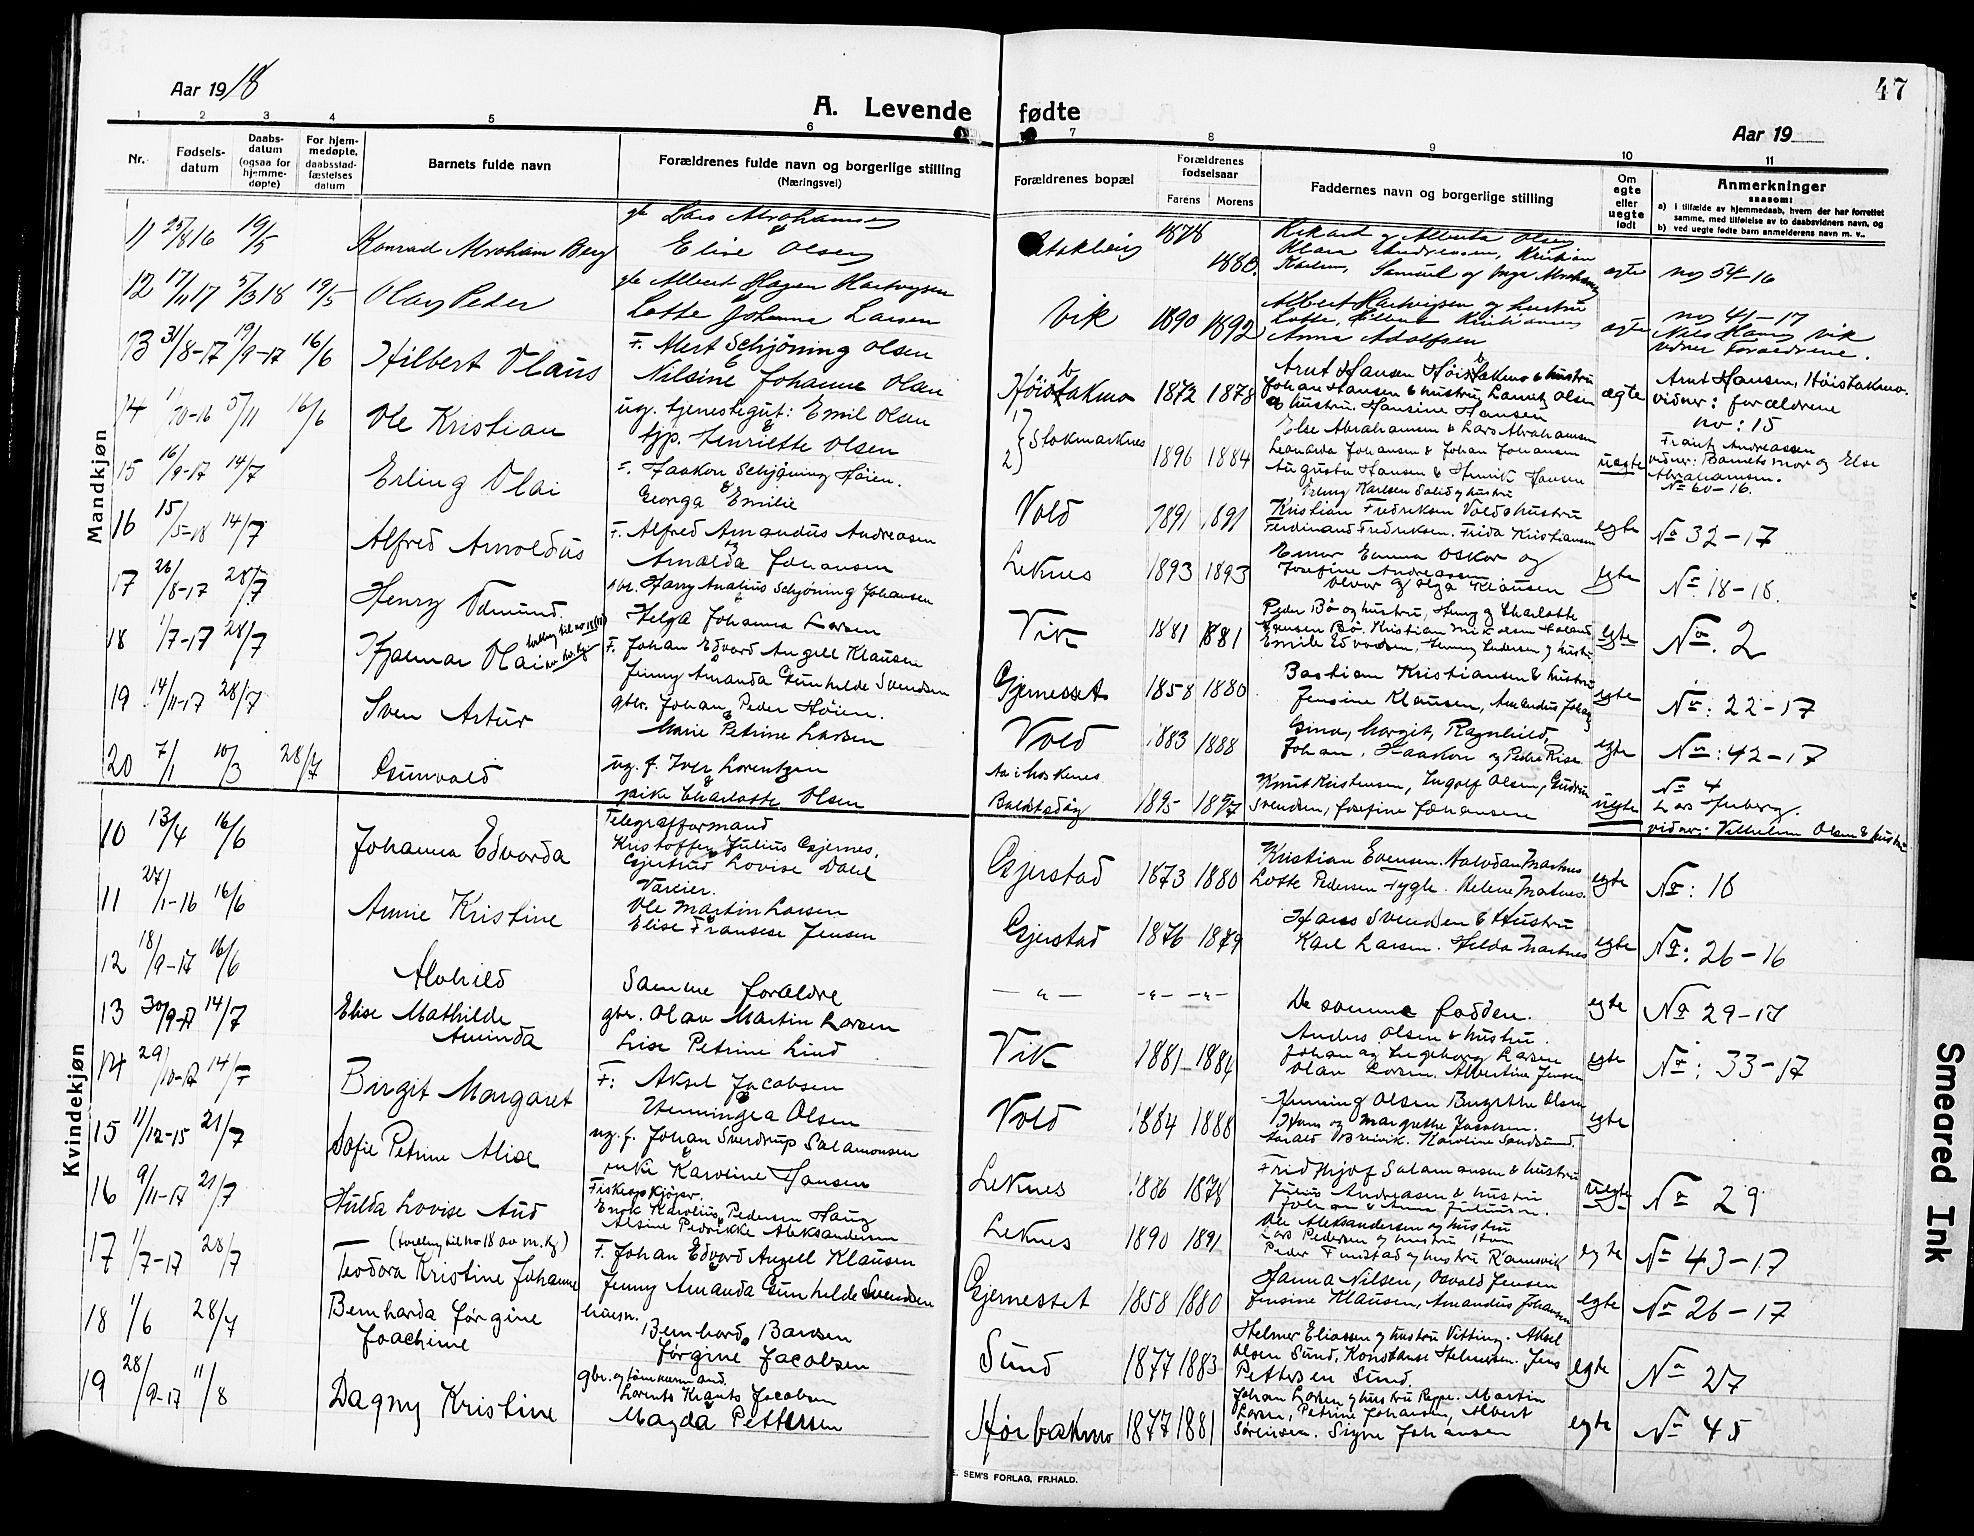 Aar 1918
A. Levende fødte
47
Aar 19
1 2 3 4 5 6 7 8 9 10 11
Nr.
Fødsels-
datum
Daabs-
datum
(ogsaa for
hjemme-
døpte)
For hjem-
medøpte,
daabsstad-
fæstelses
datum
Barnets fulde navn
Forældrenes fulde navn og borgerlige stilling
(Næringsvei)
Forældrenes bopæl
Forældrenes
fødselsaar
Farens Morens
Faddernes navn og borgerlige stilling
Om
egte
eller
uegte
født
Anmerkninger
saasom:
a) i tilfælde av hjemmedaab, hvem der har forrettet
samme, med tilføielse av to daabsvidners navn, og
b) ved uegte født barn anmelderens navn m. v..
Mandkjøn
11 25/8 16 19/5 Konrad Abraham Berg
Lars Abrahamsen
Elise Olsen
1878 1880 egte no 54-16
12 17/11 17 5/3 18 19/5 Olav Peder
Albert Hagen Hartvigsen
Lotte Johanna Larsen
Vik 1890 1892
Albert Hartvigsen og hustru
Anna Adolfsen
egte no 41-17
vidner Forældrene.
13 31/8-17 19/9-17 16/6 Hilbert Olaus
F. Alert Schjöning Olsen
Nilsine Johanne Olsen
1872 1878
Johan Hansen & hustru, Lauritz Olsen
& hustru. Hansine Hansen
ægte
Arnt Hansen, Höistakmo.
vidner: forældrene
14 1/10-16 5/11 16/6 Ole Kristian
ug. tjenestegut: Emil Olsen
tjp. Henriette Olsen
Stokmarknes 1896 1884
Else Abrahamsen & Lars Abrahamsen
Leonarda Johansen & Johan Johansen
Augusta Hansen & Henrik Hansen
uegte
no: 15
Frantz Andreassen
vidner: Barnets mor og Else
Abrahamsen.
15 16/9-17 14/7 Erling Olai
F. Haakon Schjöning Höien.
Georga Emilie
Vold 1891 1891
Kristian Fredriksen Vold & hustru
Ferdinand Fredriksen. Frida Kristiansen
egte No 60-16.
No 32-17
16 15/5-18 14/7 Alfred Arnoldus
F. Alfred Amandus Andreasen
Arnalda Johansen
Leknes 1893 1893
Einar Emma Oskar og
Josefine Andreassen
Olvar og Olga Klausen
egte No 18-18.
17 26/8-17 28/7 Henry Edmund
gbr. Harry Analius Schjöning Johansen
Helga Johanna Larsen
Vik 1881 1881
Peder Bö og hustru, Henry og Charlotte
egte No. 2
18 1/7-17 28/7 Hjalmar Olai
F. Johan Edvard Angell Klausen
Jenny Amanda Gunhilde Svendsen
Gjernesset 1858 1880
Bastian Kristiansen & hustru
Jensine Klausen, Amandus Johans
egte No: 22-17
19 14/11-17 28/7 Sven Artur
gbr. Johan Peder Höien.
Marie Petrine Larsen
Vold 1883 1888
Gina, Margit, Ragnhild,
Johan, Haakon og Peder Rise
egte No: 42-17
20 7/1 10/3 28/7 Gunvald
ug. f. Iver Lorentzen
pike Charlotte Olsen
1895 1897
Knut Kristensen, Ingolf Olsen, Gudrun
Svendsen, Josefine Johansen
uegte No 4
vidner: Vilhelm Olsen & hustru
Kvindekjøn
10 13/4 16/6 Johanna Edvarda
Telegrafformand
Kristoffer Julius Gjernes.
Gjertrud Lovise Dahl
Gjerstad 1873 1880
Kristian Evensen. Halvdan Markus
egte No: 18
11 27/1-16 16/6 Annie Kristine
Ole Martin Larsen
Elise Fransese Jensen
Gjerstad 1876 1879
Hans Svendsen & Hustru
Karl Larsen. Hilda Marknes
egte No: 26-16
12 18/9-17 16/6 Alvhild
Samme forældre
- " - - " - - " -
De samme faddere.
egte No 29-17
13 30/9-17 14/7 Elise Mathilde
Aminda
gbr. Olav Martin Larsen
Lise Petrine Lind
Vik 1881 1884
Anders Olsen & hustru.
Johan og Ingeborg Larsen
Olav Larsen. Albertine Jensen
egte No: 33-17
14 29/10-17 14/7 Birgit Margaret
F: Aksel Jacobsen
Henningea Olsen
Vold 1884 1888
Henning Olsen Birgitte Olsen
Hans og Margrethe Jacobsen.
egte
15 11/12-15 21/7 Sofie Petrine Alise
ug. f. Johan Sverdrup Salamonsen
enke Karoline Hansen
Leknes 1886 1878
Fridthjof Salamonsen & hustru
Julius Andreasen & hustru
uegte No 29
16 9/11-17 21/7 Hulda Lovise Aud
Fiskeopkjöper.
Enok Karolius Pedersen Haug
Alsine Pedrikke Aleksandersen
Leknes 1890 1891
Ole Aleksandersen og hustru
Lars Pedersen og hustru
Peder Finstad og hustru Ramsvik
egte No 43-17
17 1/7-17 28/7 (tvilling til no 18 av m. kj)
Teodora Kristine Johanne
F. Johan Edvard Angell Klausen
Jenny Amanda Gunhilde Svendsen
Gjernesset 1858 1880
Hanna Nilsen, Osvald Jensen
Jensine Klausen, Amandus Johansen
egte No 26-17
18 1/6 28/7 Bernharda Jörgine
Joachime
husm.
Bernhard Bardsen
Jörgine Jacobsen
Sund 1877 1883
Helmer Eliassen og hustru Vitting. Aksel
Olsen Sund, Konstanse Helmersen. Jens
Pettersen Sund.
egte No 27
19 28/9-17 11/8 Dagny Kristine
gbr. og tömmermand.
Lorents Krants Jacobsen
Magda Pettersen
1877 1881
Johan Larsen og hustru Reppe. Martin
Larsen, Petrine Johansen, Albert
Sörensen. Signe Johansen
egte No 45
SEM'S FORLAG, FR.HALD.
Smeared Ink